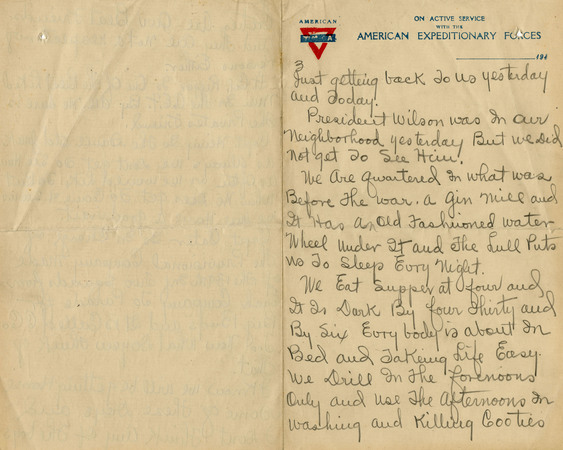 AMERICAN
Y.M.C.A.
ON ACTIVE SERVICE
WITH THE
AMERICAN EXPEDITIONARY FORCES
191
3
Just getting back To us yesterday
and Today.
President Wilson was In our
Neighborhood yesterday But we Did
Not get To See Him.
We Are quartered In what was
Before The war. A Gin Mill and
It Has An Old Fashioned water
Wheel Under It and The Lull Puts
us To Sleep Evry Night.
We Eat Supper at four and
It Is Dark By four Thirty and
By Six Evry body is about In
Bed and Takeing Life Easy.
We Drill In The forenoons
Only and use The Afternoons In
washing and Killing Cooties